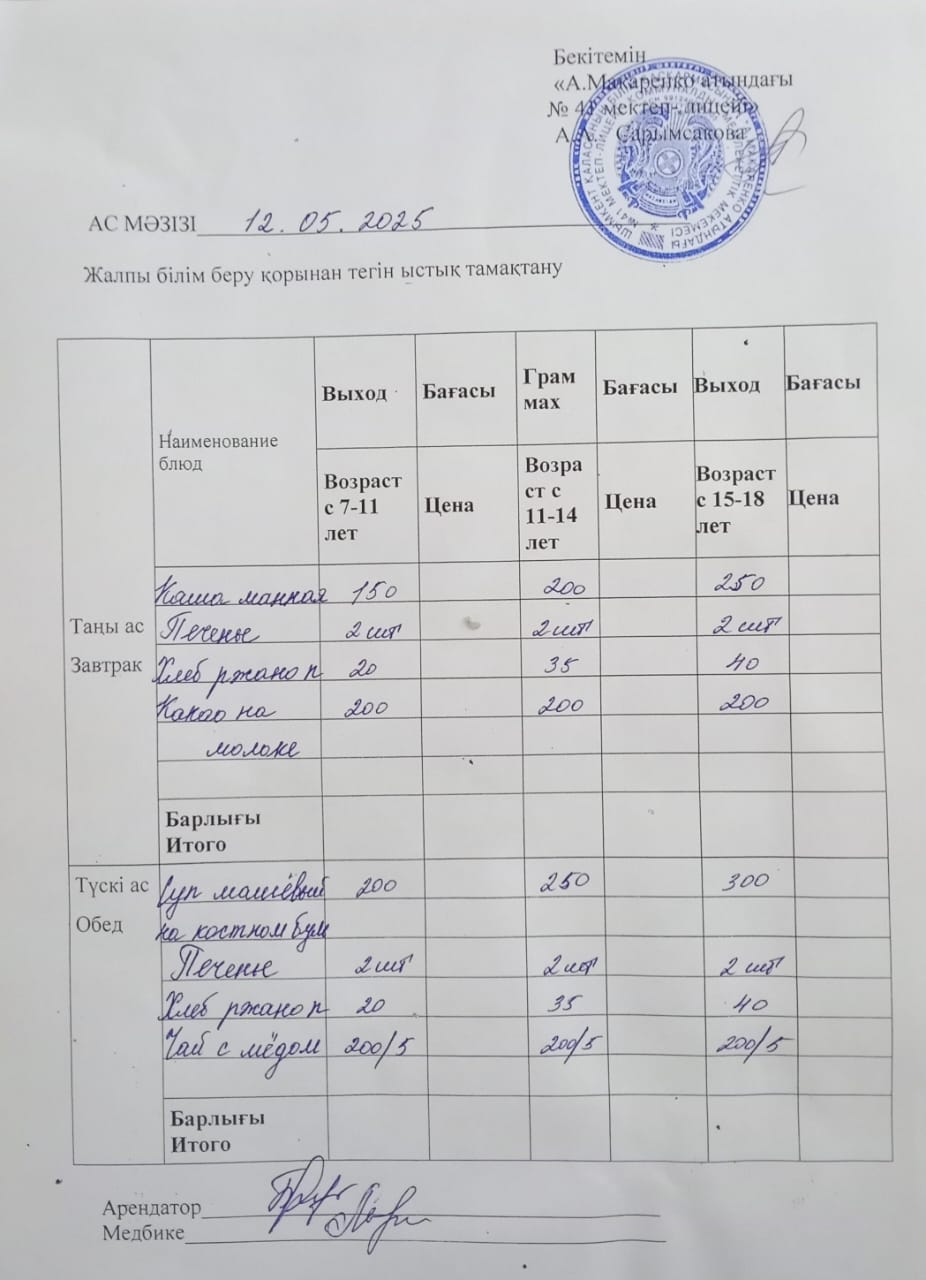 Бекітемін
«А.Макаренко атындағы
№ 41 мектеп- лицейі»
А. А. Сарымсакова
АС МӘЗІЗІ 12.05.2025
Жалпы білім беру қорынан тегін ыстық тамақтану
Наименование блюд Выход Бағасы Грам мах Бағасы Выход Бағасы
Возраст с 7-11 лет Цена Возра ст с 11-14 лет Цена Возраст с 15-18 лет Цена
Таңы ас
Завтрак
Каша манная 150 200 250
Печенье 2 шт 2 шт 2 шт
Хлеб ржано п 20 35 40
Какао на 200 200 200
молоке
Барлығы
Итого
Түскі ас
Обед
Суп машевый 200 250 300
на костном бул
Печенье 2 шт 2 шт 2 шт
Хлеб ржано п 20 35 40
Чай с мёдом 200/5 200/5 200/5
Барлығы
Итого
Арендатор
Медбике